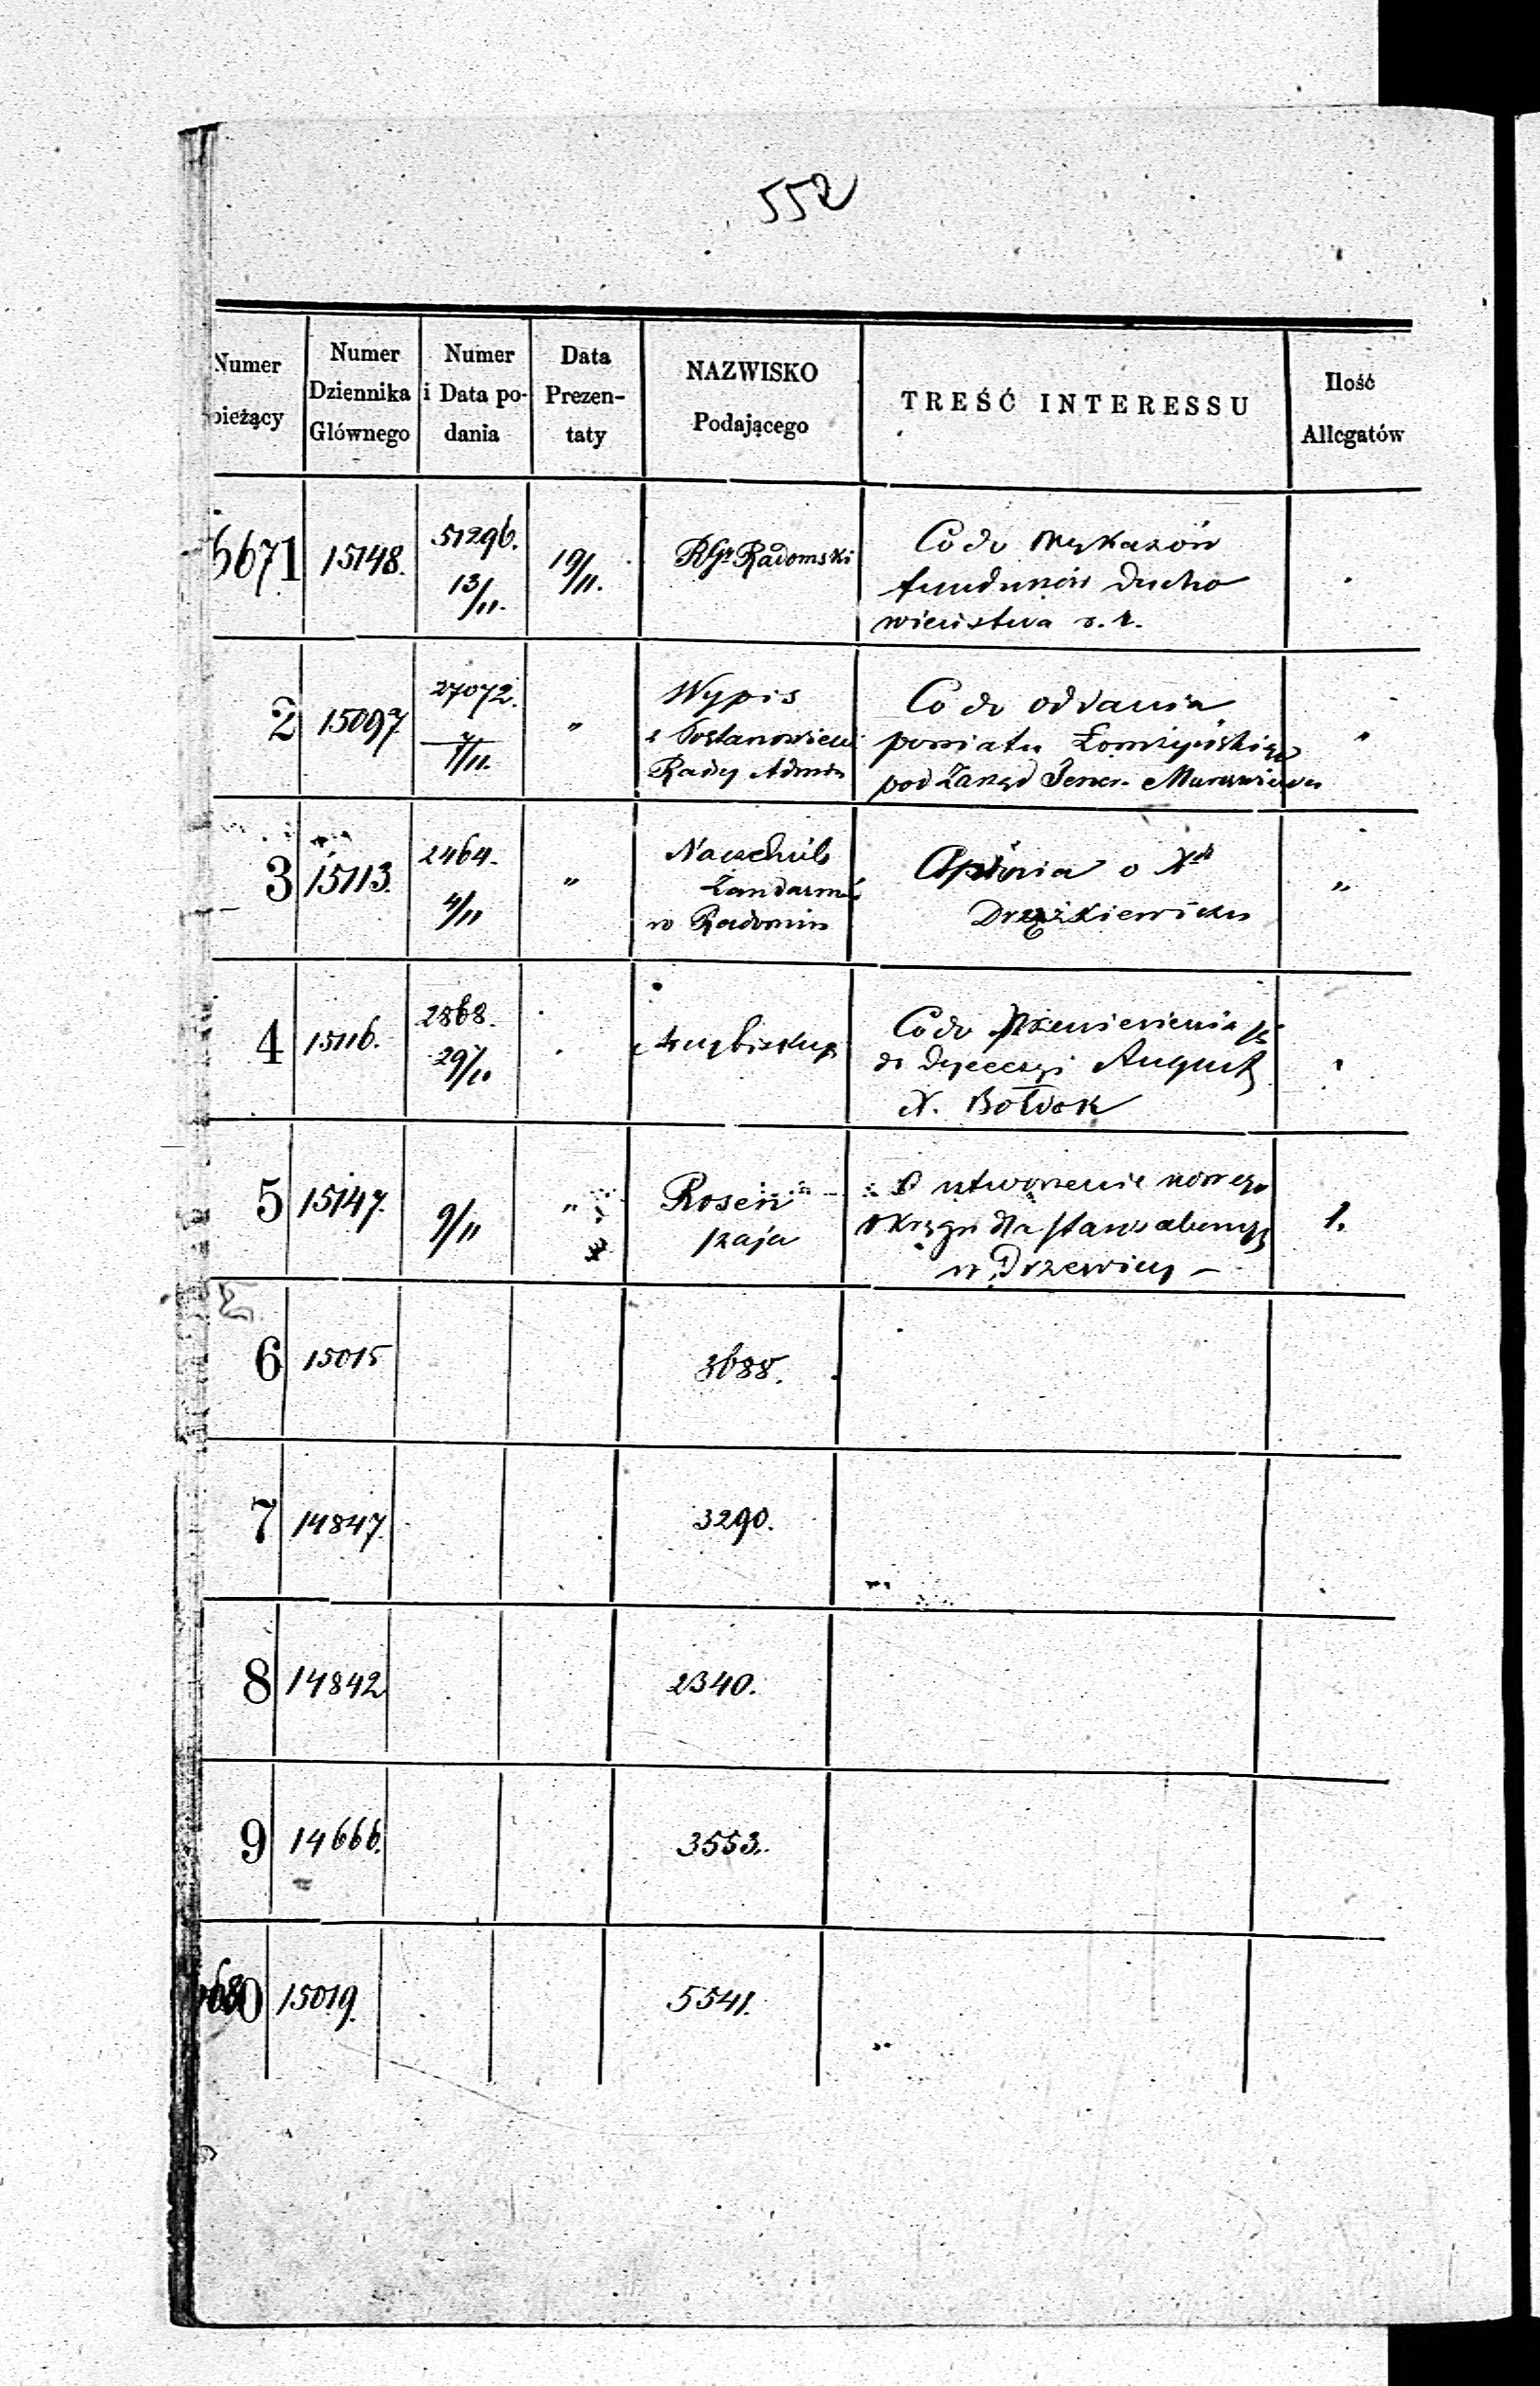 552
Numer bieżący
Numer Dziennika Głównego
Numer i Data podania
Data Prezentaty
NAZWISKO Podającego
TREŚĆ INTERESSU
Ilość Allegatów
6671 15148. 51296. 13/11. 19/11. RGr Radomski Co do wykazów
funduszów Ducho
wieństwa r. k.
2 15097 27072. 7/11. " Wypis Co do oddania
z Postanowień powiatu Łomżyńskiego "
Rady Admin pod Zarząd Jener. Murawiewa
3 15113. 2464. 4/11 " Naczelnik Opinia o Xdz
Żandarmów Drążkiewiczu "
w Radomiu
4 15116. 2868. 29/10 Arcybiskup Co do przeniesienia
do Dyecezyi August
X. Bołdok
5 15147. 9/11 " Rosen O utworzenie nowego
okręgu dla staro 1.
w Drzewicy –
6 15015 3688.
7 14847. 3290.
8 14842 2340.
9 14666. 3553.
680 15019. 5541.